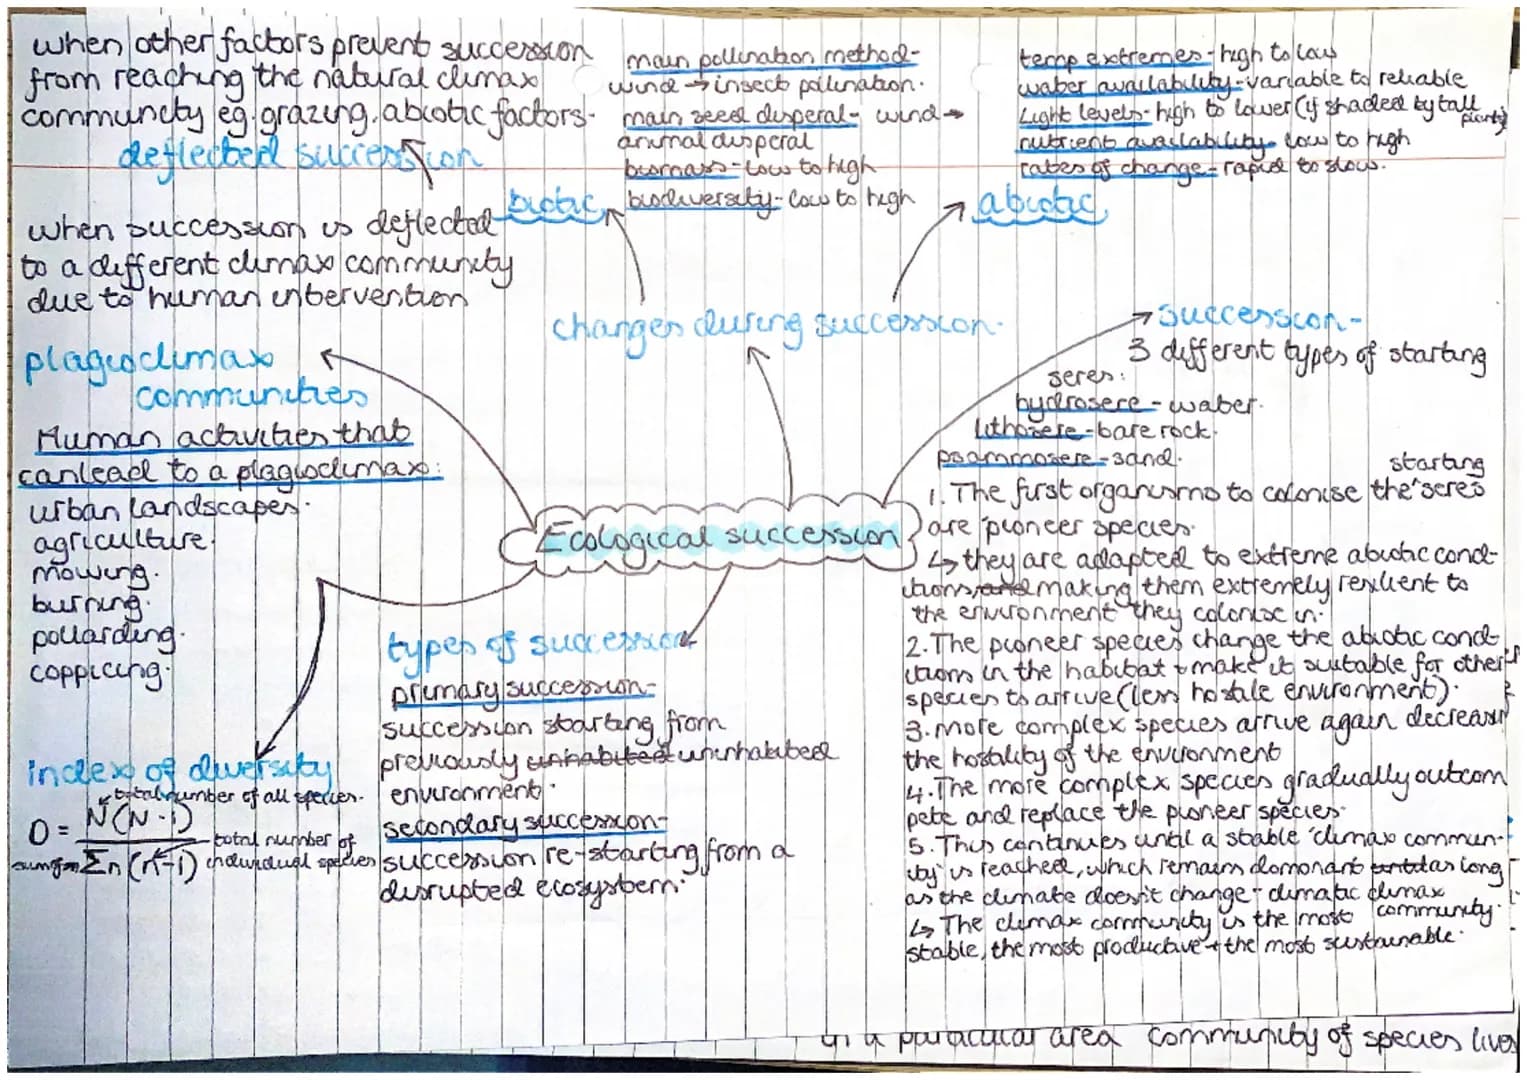 when other factors prevent succession
from reaching the natural climax
community eg. grazing, abiotic factors-
deflected succession
when succession is deflected
to a different climax community
due to human intervention
plagioclimax
communities
Human activities that
can lead to a plagioclimax:
urban landscapes.
agriculture.
mowing.
burning.
pollarding.
coppicing.
index of diversity
total number of all species.
D = N(N-1)
Σn(n-1)
sum of
total number of
individual species
biotic
main pollination method-
wind → insect pollination.
main seed dispersal- wind →
animal dispersal
biomass- low to high
biodiversity- low to high
abiotic
temp extremes- high to low
water availability- variable to reliable
Light levels- high to lower (if shaded by tall
plants)
nutrient availability- low to high
rates of change- rapid to slow.
changes during succession.
Ecological succession
types of succession
primary succession-
succession starting from
previously unhabited uninhabited
environment.
secondary succession-
succession re-starting from a
disrupted ecosystem.
succession-
3 different types of starting
seres:
hydrosere - water.
lithosere - bare rock.
psammosere - sand.
starting
1. The first organisms to colonise the seres
are 'pioneer species.
↳ they are adapted to extreme abiotic cond-
itions, and making them extremely resilient to
the environment they colonise in.
2. The pioneer species change the abiotic cond-
itions in the habitat + make it suitable for other
species to arrive (less hostile environment).
3. more complex species arrive again decreasin
the hostality of the environment
4. The more complex species gradually outcom
pete and replace the pioneer species.
5. This continues until a stable 'climax commun-
ity' is reached, which remains domonant until as long
as the climate doesn't change - climatic climax
community.
↳ The climax community is the most
stable, the most productive + the most sustainable.
in a particular area community of species lives